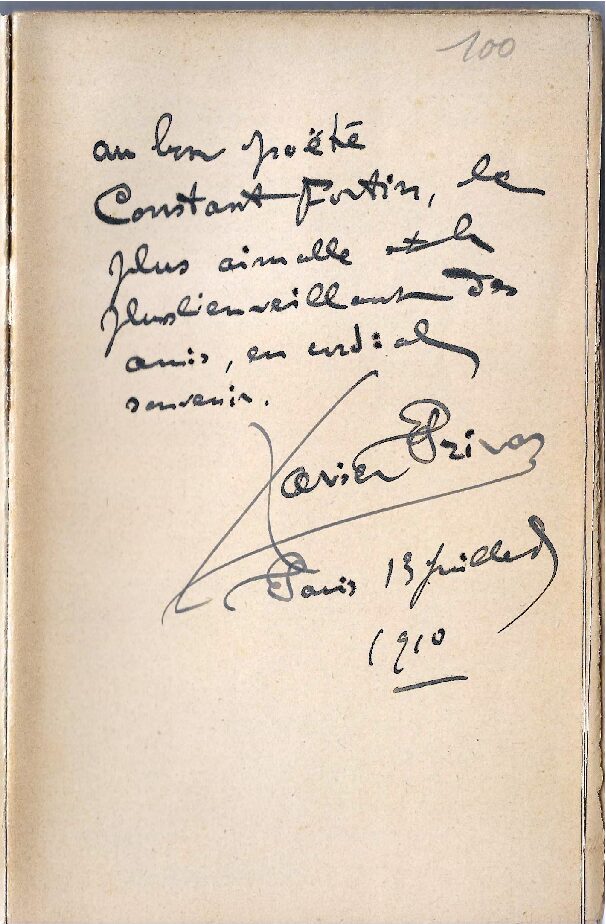 100
au bon poëte
Constant Fortin, le
plus aimable et le
plus bienveillant des
amis, en cordial
souvenir.
Xavier Privas
Paris 13 juillet
1910